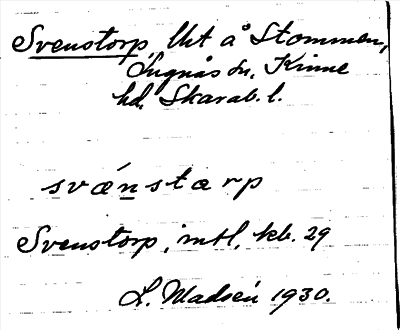 Svenstorp, lht å Stommen,
Lugnås sn, Kinne
hd, Skarab. l.
svǽnstarp
Svenstorp, mtl, kb. 29
L. Madsén 1930.